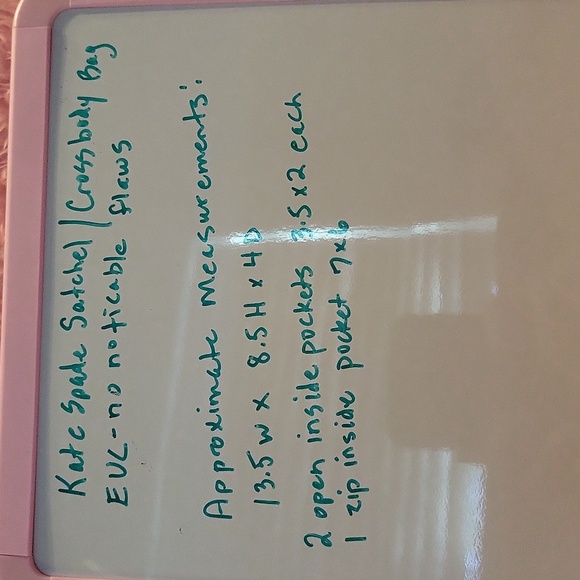 Kate Spade Satchel / Crossbody Bag
EUC - no noticable flaws
Approximate Measurements:
13.5 W x 8.5 H x 4 D
2 open inside pockets 3.5 x 2 each
1 zip inside pocket 7x6